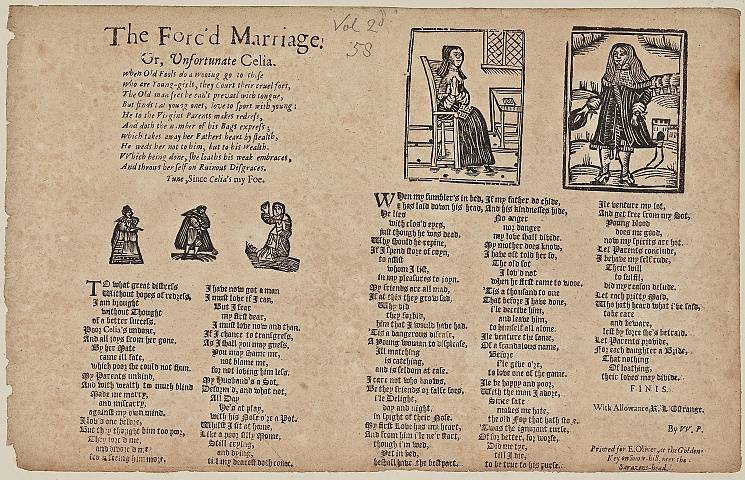 The Forc'd Marriage.
Or, Unfortunate Celia.
Vol 2d
58
When Old Fools do a wooing go to those
who are Young-girls, they Court their cruel fort,
The Old man sees he can't prevail with tongue,
But finds that young ones, love to sport with young:
He to the Virgins Parents makes redress,
And doth the number of his Bags express;
which takes away her Fathers heart by stealth,
He weds her not to him, but to his wealth.
Which being done, she loaths his weak embraces,
And throws her self on Ruinous Disgraces.
Tune, Since Celia's my Foe.
TO what great distress
Without hopes of redress,
I am brought
without Thought
of a better success.
Poor Celia's undone,
And all joys from her gone.
By her Mate
came ill fate,
which poor she could not shun.
My Parents unkind,
And with wealth too much blind
Made me marry,
and miscarry,
against my own mind.
I lov'd one before,
But they thought him too poor,
They forc'd me,
and divorc'd me
from seeing him more.
I have now got a man
I must love if I can,
But I fear
my first dear,
I must love now and than.
If I change to transgress,
As I shall you may guess,
You may shame me,
not blame me,
for not loving him less.
My Husband's a Sot,
Deform'd, and what not,
All Day
He's at play,
with his Nose o're a Pot.
Whilst I sit at home,
Like a poor silly Mome,
Still crying,
and dying,
til my dearest doth come.
WHen my fumbler's in bed,
& has laid down his head,
He lies
with clos'd eyes,
just though he was dead.
Why should he repine,
If I spend store of coyn,
to assist
whom I list,
in my pleasures to joyn.
My friends are all mad,
If at this they grow sad,
Why did
they forbid,
him that I would have had.
'Tis a dangerous disease,
A young woman to displease,
Ill matching
is catching,
and is seldom at ease.
I care not who knows,
Be they friends or false foes,
i'le Delight,
day and night,
in spight of their Nose.
My first Love has my heart,
And from him i'le ne'r start,
though i'm wed,
Yet in bed,
he shall have the best part.
If my father do chide,
And his kindnesses hide,
No anger
nor danger
my love shall divide.
My mother does know,
I have oft told her so,
The old sot
I lov'd not
when he first came to wooe.
'Tis a thousand to one
That before I have done,
i'le deceive him,
and leave him,
to himself all alone.
Ile venture the same,
Of a scandalous name,
Before
i'le give o're,
to love one of the game.
Ile be happy and poor,
With the man I adore,
Since fate
makes me hate,
the old Fop that hath store.
'Twas the ignorant curse,
Of for better, for worse,
Did me tye,
till I die,
to be true to his purse.
Ile venture my lot,
And get free from my Sot,
Young blood
does me good,
now my spirits are hot.
Let Parents conclude,
I behave my self rude,
Their will
to fulfil,
did my reason delude.
Let each pitty Maid,
Who hath heard what i've said,
take care
and beware,
lest by force she's betraid.
Let Parents provide,
For each daughter a Bride,
That nothing
Of loathing,
their loves may divide.
FINIS.
With Allowance, R. L'Estrange.
By W. P.
Printed for E. Oliver, at the Golden-
Key on Snow-hill, near the
Sarazens-head.